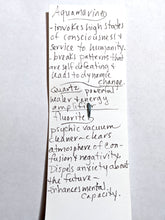 Aquamarine
-invokes high states
of consciousness &
service to humanity.
breaks patterns that
are self defeating &
leads to dynamic
change.
Quartz powerful
healer & energy
amplifier
fluorite
psychic vacuum
cleaner-clears
atmosphere of con-
fusion & negativity.
Dispels anxiety about
the future-
enhances mental
capacity.